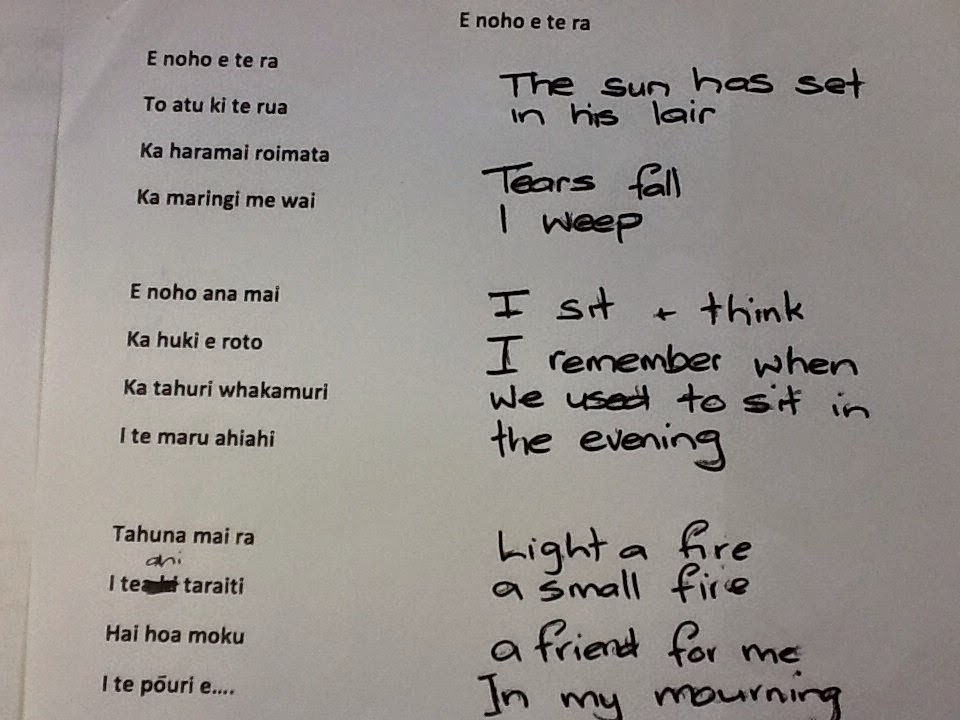 E noho e te ra
E noho e te ra
To atu ki te rua
Ka haramai roimata
Ka maringi me wai
The sun has set
in his lair
Tears fall
I weep
E noho ana mai
Ka huki e roto
Ka tahuri whakamuri
I te maru ahiahi
I sit + think
I remember when
we used to sit in
the evening
Tahuna mai ra
ahi
I te taraiti
Hai hoa moku
I te pōuri e....
Light a fire
a small fire
a friend for me
In my mourning